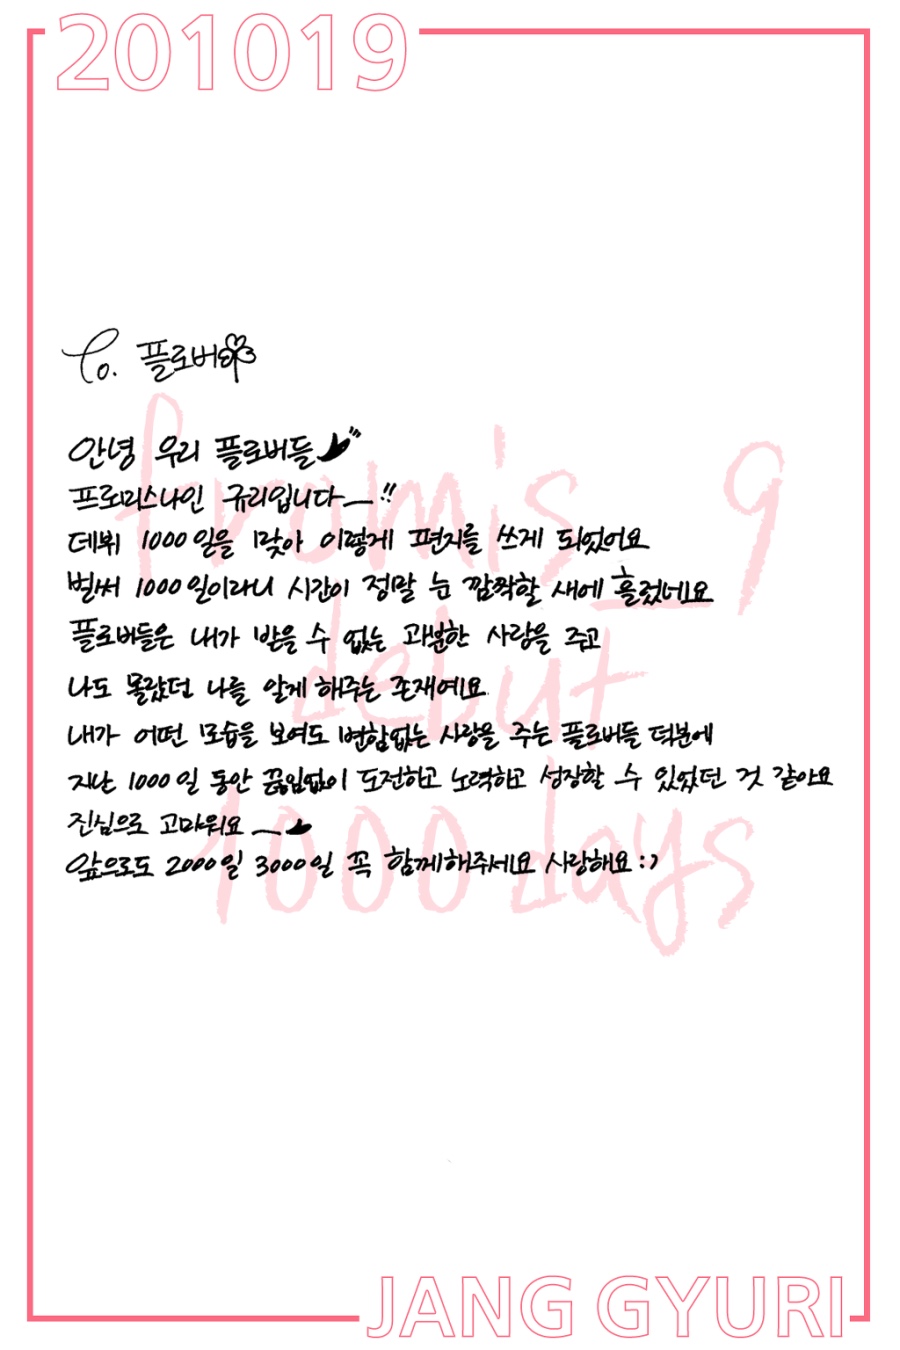 201019
To. 플로버
안녕 우리 플로버들
프로미스나인 규리입니다__!!
데뷔 1000일을 맞아 이렇게 편지를 쓰게 되었어요
벌써 1000일이라니 시간이 정말 눈 깜짝할 새에 흘렀네요
플로버들은 내가 받을 수 없는 과분한 사랑을 주고
나도 몰랐던 나를 알게 해주는 존재예요
내가 어떤 모습을 보여도 변함없는 사랑을 주는 플로버들 덕분에
지난 1000일 동안 끊임없이 도전하고 노력하고 성장할 수 있었던 것 같아요
진심으로 고마워요
앞으로도 2000일 3000일 꼭 함께해주세요 사랑해요:)
fromis_9
debut
1000 days
JANG GYURI